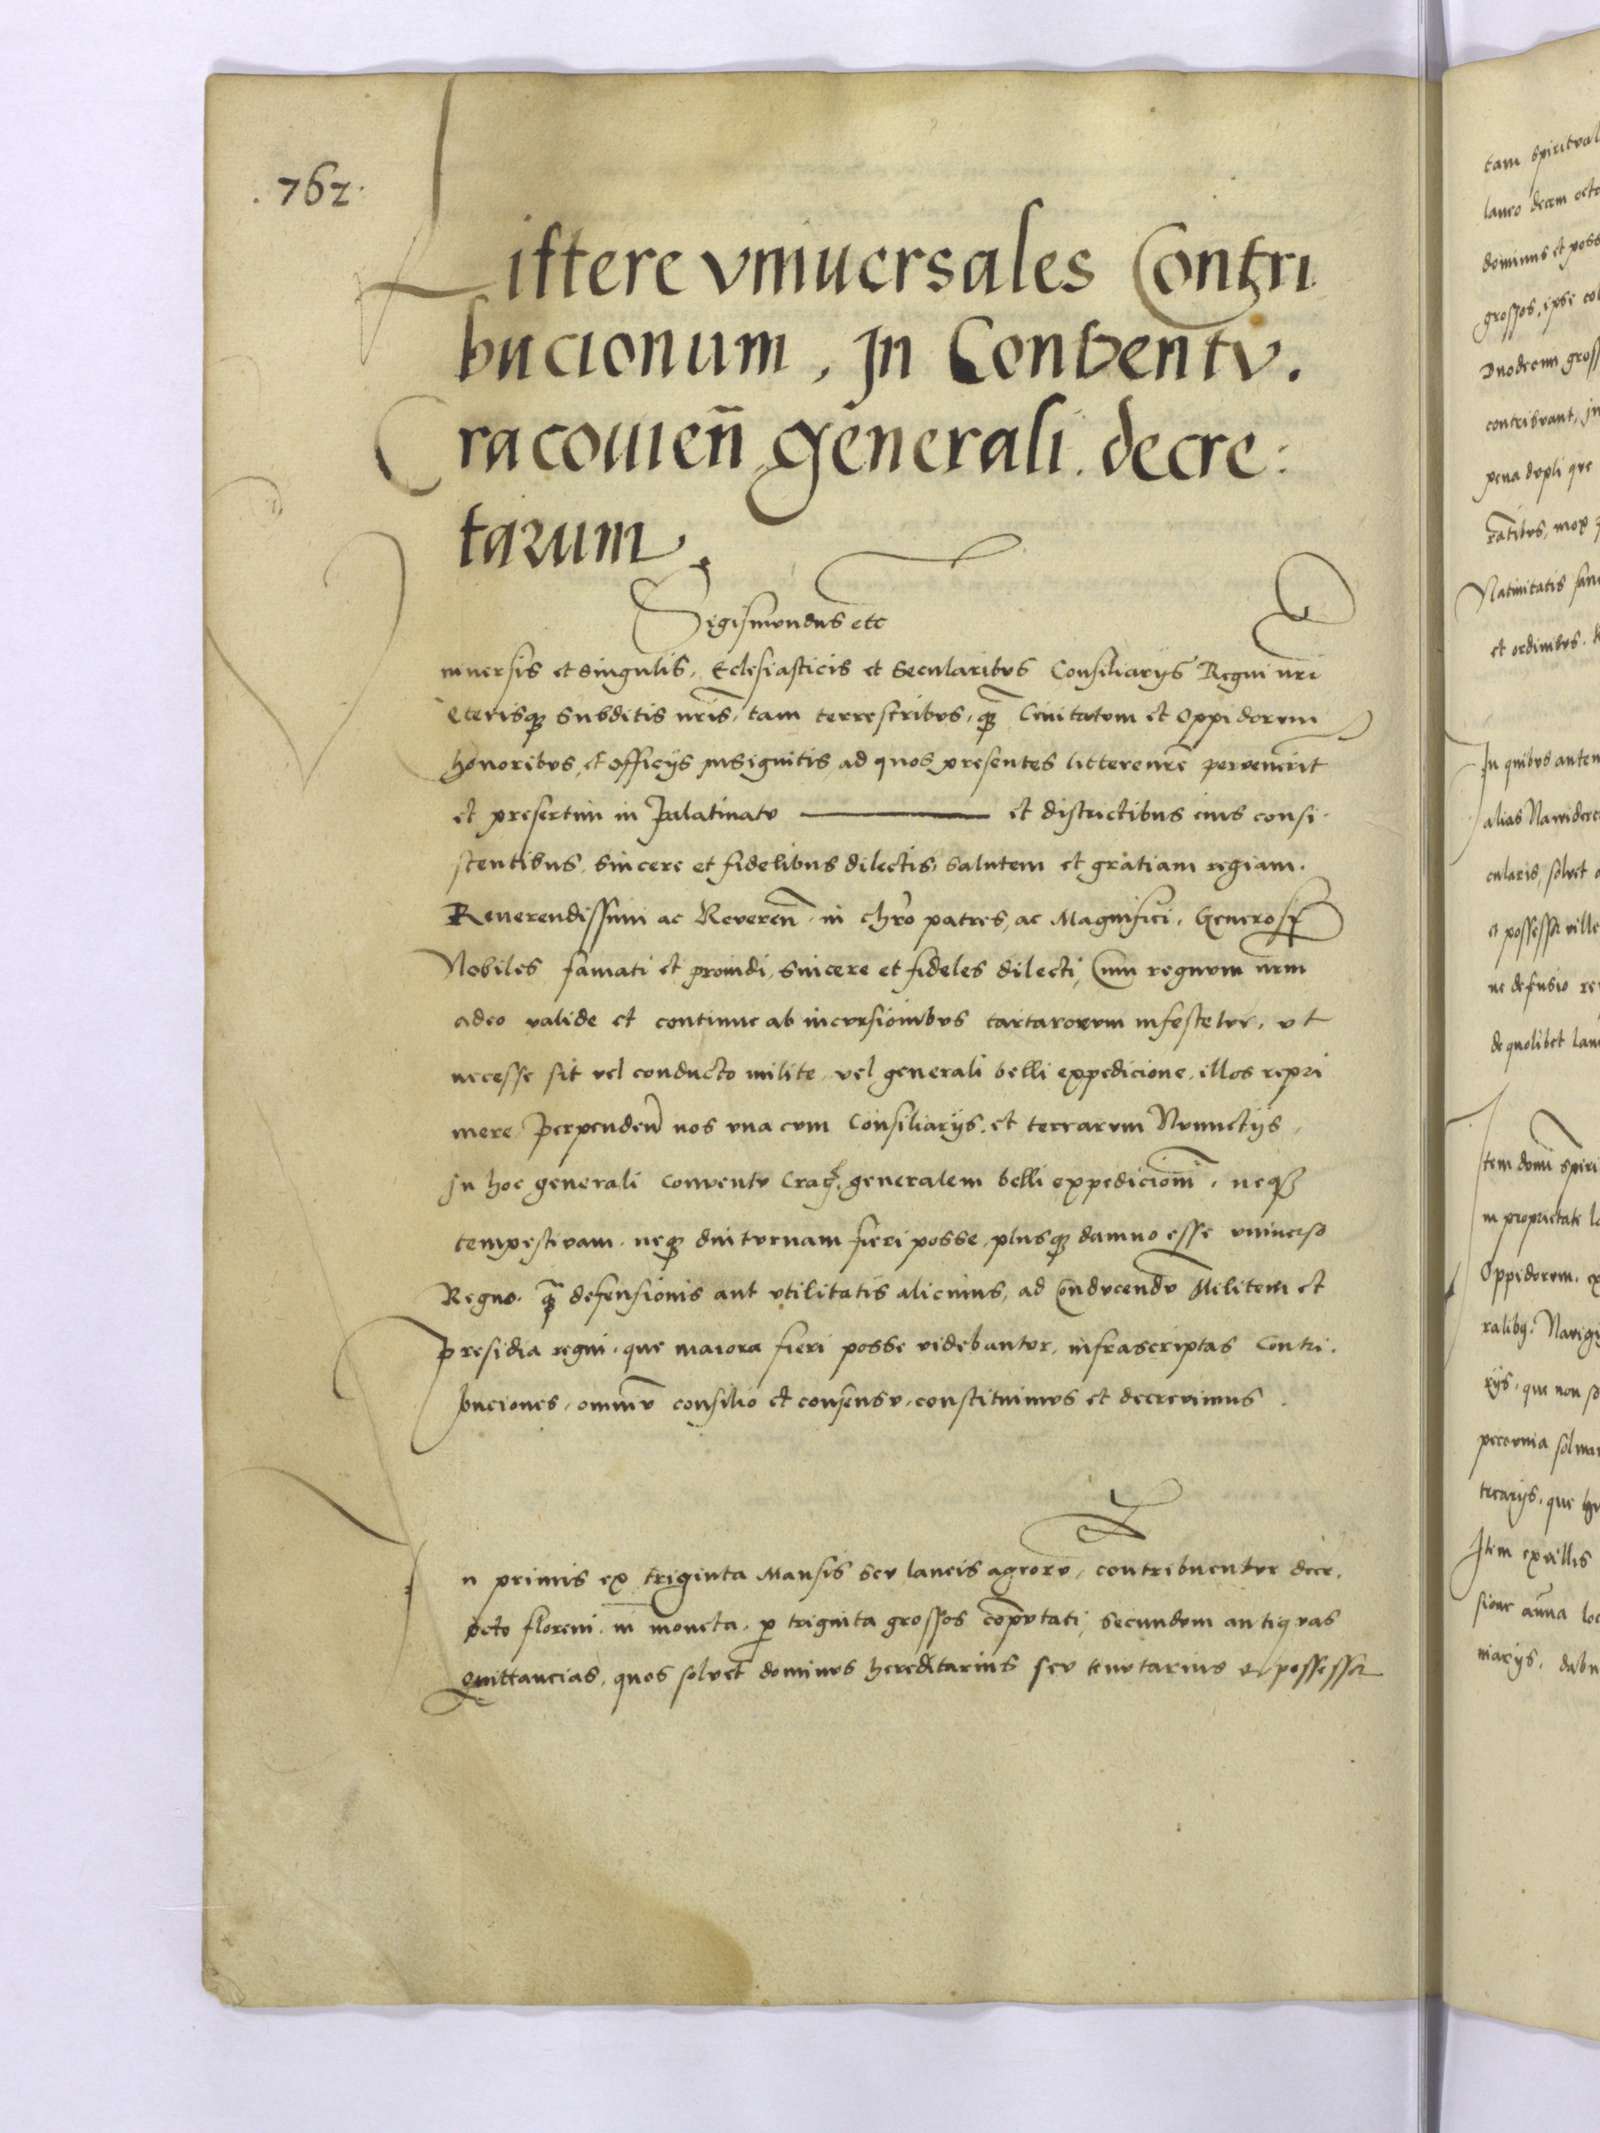 .762.
Littere vniuersales Contri
bucionum, In Conventv.
Cracouien̄ generali. decre:
tarum.
Sigismundus etc
Vniuersis et singulis, Eclesiasticis et Secularibvs Consiliarijs Regni nr̄i
Ceterisqȝ Subditis nr̄is, tam terrestribvs, qȝ Ciuitatvm et Oppidorvm
honoribvs, et officijs insignitis, ad quos presentes litterenr̄e pervenerit
et presertim in Palatinatv ——— et districtibus eius consi-
stentibus, sincere et fidelibus dilectis, salutem et gratiam regiam.
Reuerendissimi ac Reveren̄ in chr̄o patres, ac Magnifici, Generosi
Nobiles famati et prouidi, sincere et fideles dilecti, Cum regnvm nr̄m
adeo valide et continue ab incvrsionibvs tartarorvm infestetvr, vt
necesse sit vel conducto milite, vel generali belli expedicione, illos repri
mere Perpenden̄ nos vna cvm Consiliarijs, et terrarvm Nvnctijs,
In hoc generali conventv Crac̄, generalem belli expedicion̄m, neqȝ
tempestivam, neqȝ diuturnam fieri posse, plusqȝ damno esse vniuerso
Regno, qȝ defensionis aut vtilitatis alicuius, ad Condvcendv̄ Militem et
presidia regni, que maiora fieri posse videbantvr, infrascriptas Contri-
buciones, omniv̄ consilio et consensv, constituimvs et decrevimus.
In primis ex triginta Mansis sev laneis agrorv̄, contribuentvr dece.
octo floreni in moneta, p triginta grossos cōpvtati, secundvm antiqvas
quittancias, quos solvet dominvs hereditarius sev tenvtarius et possessor
tam spiritval
laneo decem octo
dominus et poss
grossos, ipse col
Dnodecim gross
contribvant, in
pena dvpli que
ratibvs, mox
Natiuitatis san
et ordinibvs.
In quibvs autem
alias Nawiderc
cularis, solvet
et possessor ville
ne defensio re
de quolibet lan
Item domi spiri
in proprietate
Oppidorvm, ex
ralibȝ, Navigi
rijs, que non so
pecvnia solvan
tecarijs, que
Item ex villis
sione
niarijs, dabn